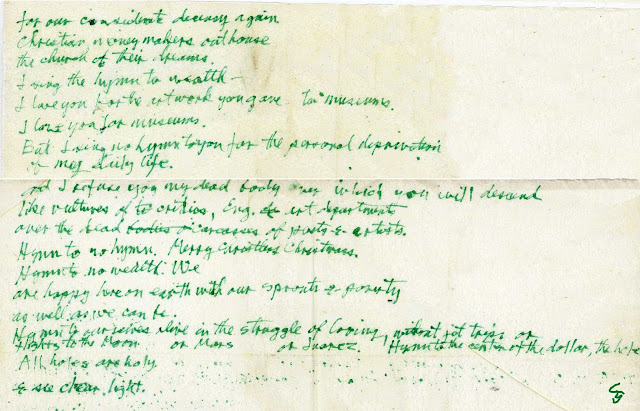 for our considerate decency again
Christian money makers outhouse
the church of their dreams.
I sing the hymn to wealth –
I love you for the art work you gave to museums.
I love you for museums.
But I sing no hymn to you for the personal deprivation
of my daily life.
and I refuse you my dead body over which you will descend
like vultures of critics, Eng. art departments
over the dead bodies or carcases of poets & artists.
Hymn to no hymn. Merry Christless Christmas.
Hymn to no wealth. We
are happy here on earth with our sprouts & poverty
as well as we can be.
Hymn to ourselves alive in the struggle of Loving, without jet trips or
flights to the Moon or Mars or Juarez. Hymn to the center of the dollar, the hole
All holes are holy
& see clear light.